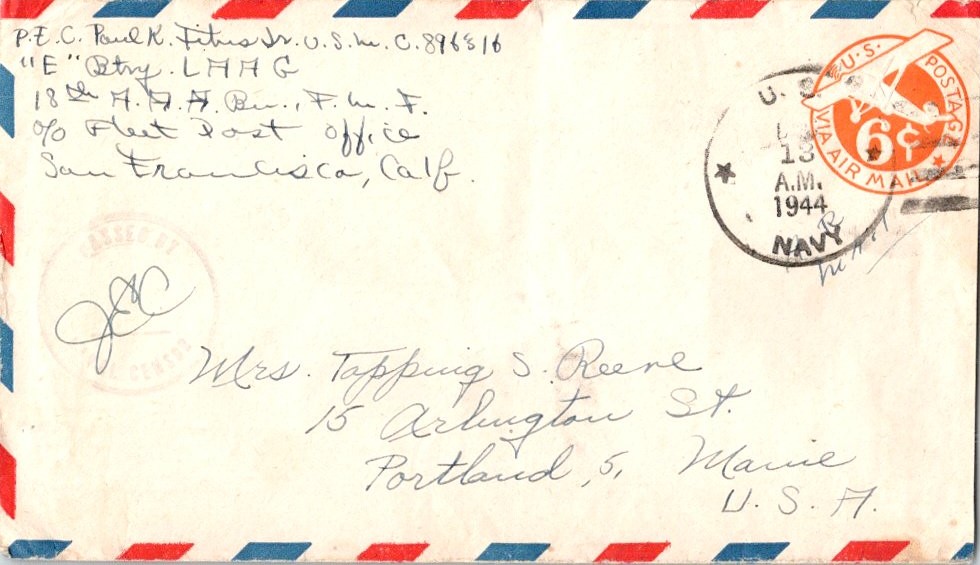 P.F.C. Paul K. Titus Jr. U.S.M.C. 896816
"E" Btry. LAAG
18th A.A.A. Bn., F.M.F.
c/o Fleet Post Office
San Francisco, Calif.
U.S. POSTAGE
VIA AIR MAIL
6¢
U. S.
13
A.M.
1944
NAVY
PASSED BY
NAVAL CENSOR
JEC
Mrs. Tapping S. Reeve
15 Arlington St.
Portland, 5, Maine
U. S. A.